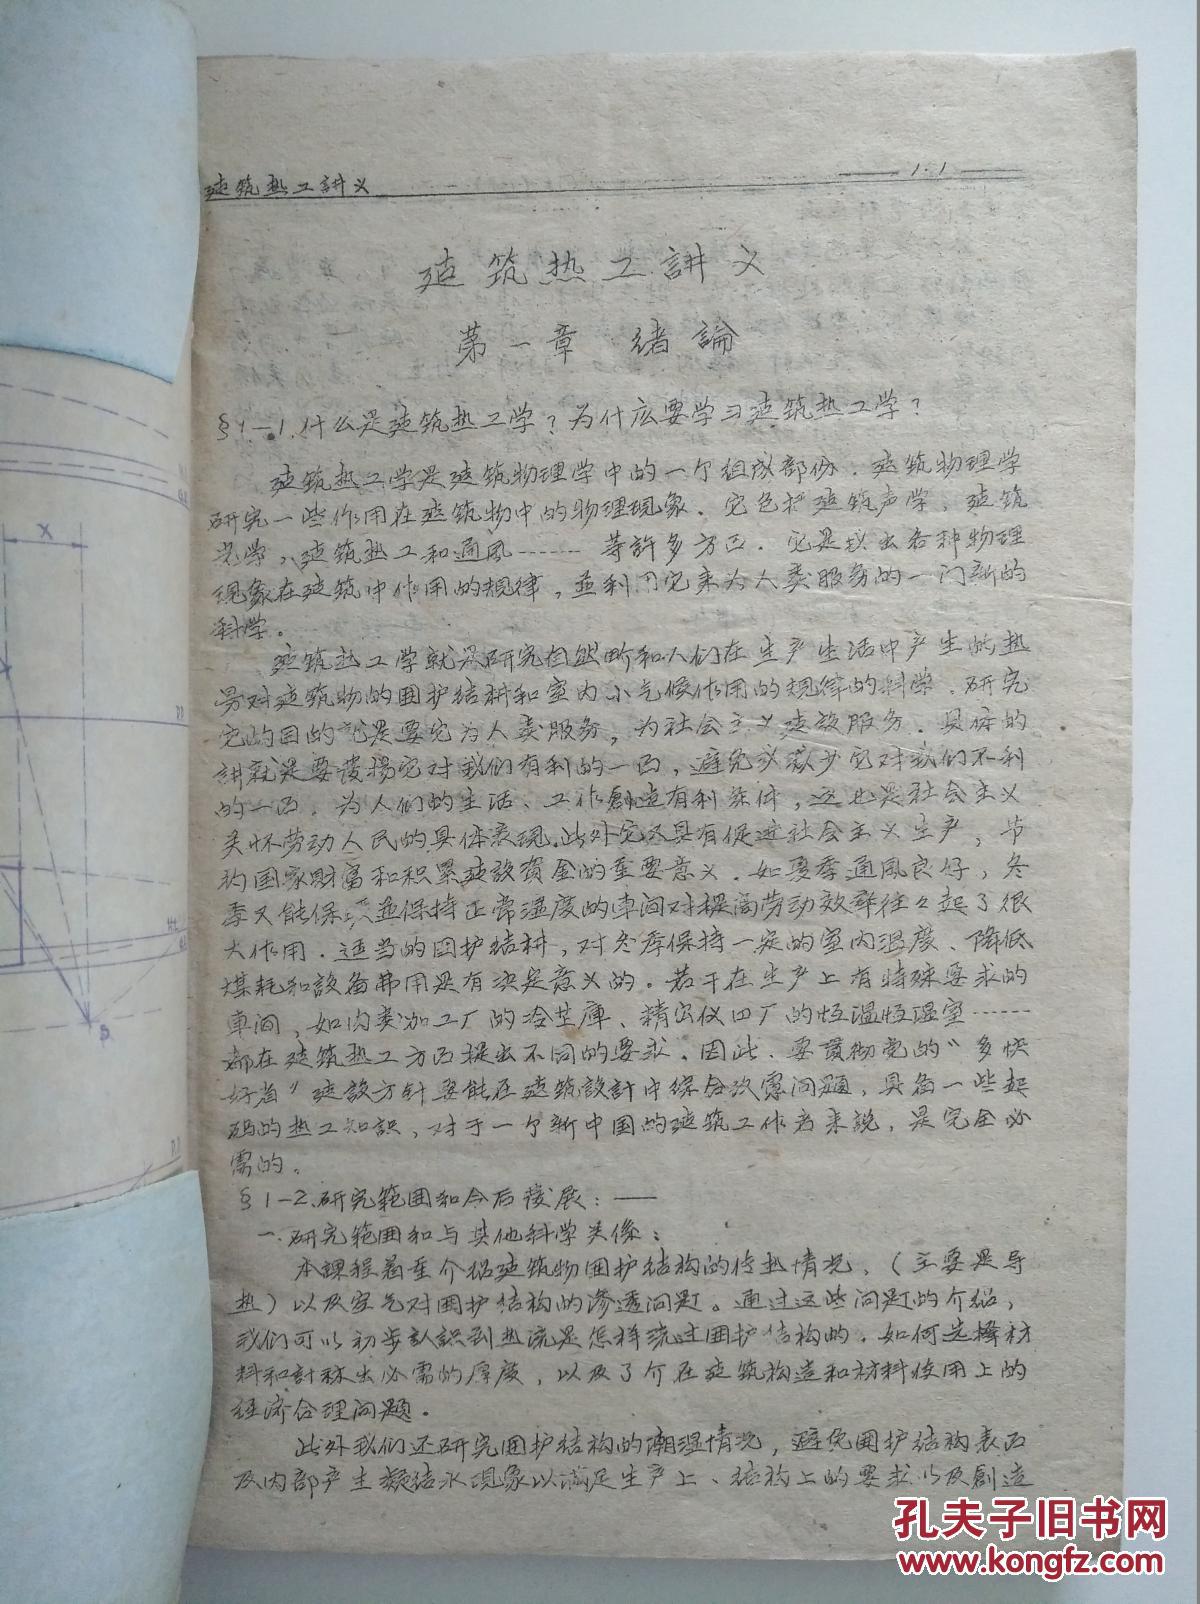 建筑热工講义
1.1
建筑热工講义
第一章 绪論
§1-1.什么是建筑热工学?为什庅要学习建筑热工学?
建筑热工学是建筑物理学中的一个组成部份.建筑物理学
研究一些作用在建筑物中的物理现象.它包括建筑声学,建筑
光学,建筑热工和通風……等許多方面.它是找出各种物理
现象在建筑中作用的规律,並利用它来为人类服务的一门新的
科学。
建筑热工学就是研究自然界和人们在生产生活中产生的热
对建筑物的围护结構和室内小气候作用的规律的科学.研究
它的目的就是要它为人类服务,为社会主义建设服务.具体的
講就是要發揚它对我们有利的一面,避免或减少它对我们不利
的一面.为人们的生活、工作創造有利条件,这也是社会主义
关怀劳动人民的具体表现.此外它又具有促進社会主义生产,节
约国家财富和积累建設資金的重要意义.如夏季通風良好,冬
季又能保 並保持正常温度的車间对提高劳动效率往々起了很
大作用.适当的围护结構,对冬季保持一定的室内温度、降低
煤耗和設备费用是有决定意义的.若干在生产上有特殊要求的
車间,如肉类加工厂的冷藏庫、精密仪四厂的恒温恒湿室……
都在建筑热工方面提出不同的要求.因此.要貫彻党的"多快
好省"建設方針要能在建筑設計中综合攷慮问题,具备一些起
码的热工知識,对于一个新中国的建筑工作者来說,是完全必
需的。
§1-2.研究範围和今后發展:——
一.研究範围和与其他科学关係:
本課程着重介绍建筑物围护结构的传热情况,(主要是导
热)以及空气对围护结构的滲透问题。通过这些问题的介绍,
我们可以初步认識到热流是怎样流过围护结构的.如何选擇材
料和計称出必需的厚度,以及了介在建筑构造和材料使用上的
经济合理问题.
此外我们还研究围护结构的潮湿情况,避免围护结构表面
及内部产生凝结水现象以滿足生产上、结构上的要求以及創造
X
孔夫子旧书网
www.kongfz.com